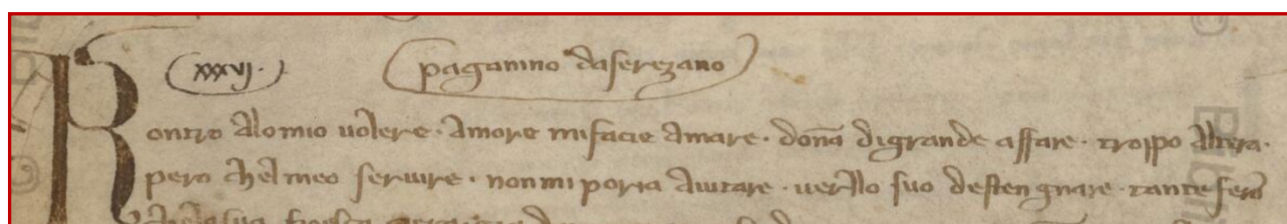 xxxvj. paganino daserezano
Kontro alomio uolere · amore mifacie amare · dona digrande affare · troppo altera ·
pero chelmeo seruire · nonmi poria aiutare · uerllo suo destengnare · tante fera